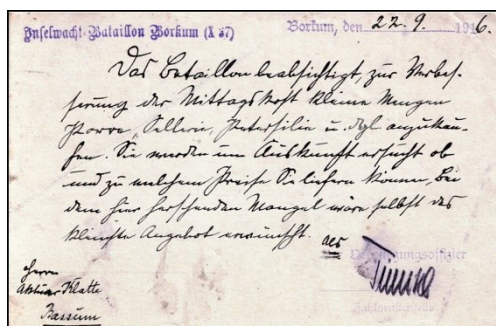 Inselwacht-Bataillon Borkum (X 37)
Borkum, den 22. 9. 1916.
Das Bataillon beabsichtigt, zur Verbes-
serung der Mittagskost kleine Mengen
Porree, Sellerie, Petersilie u. dgl anzukau-
fen. Sie werden um Auskunft ersucht ob
und zu welchem Preise Sie liefern können, Bei
dem hier herschenden Mangel wäre selbst das
kleinste Angebot erwünscht.
als
Verpflegungsoffizier
Zahlmeister
Herrn
Aktuar Klatte
Bassum